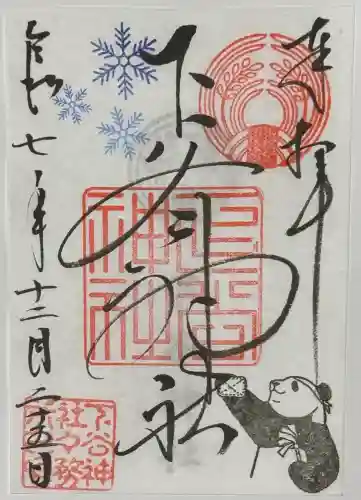 奉拝
下谷神社
下谷神社
令和七年十二月二十五日
下谷神
社々務